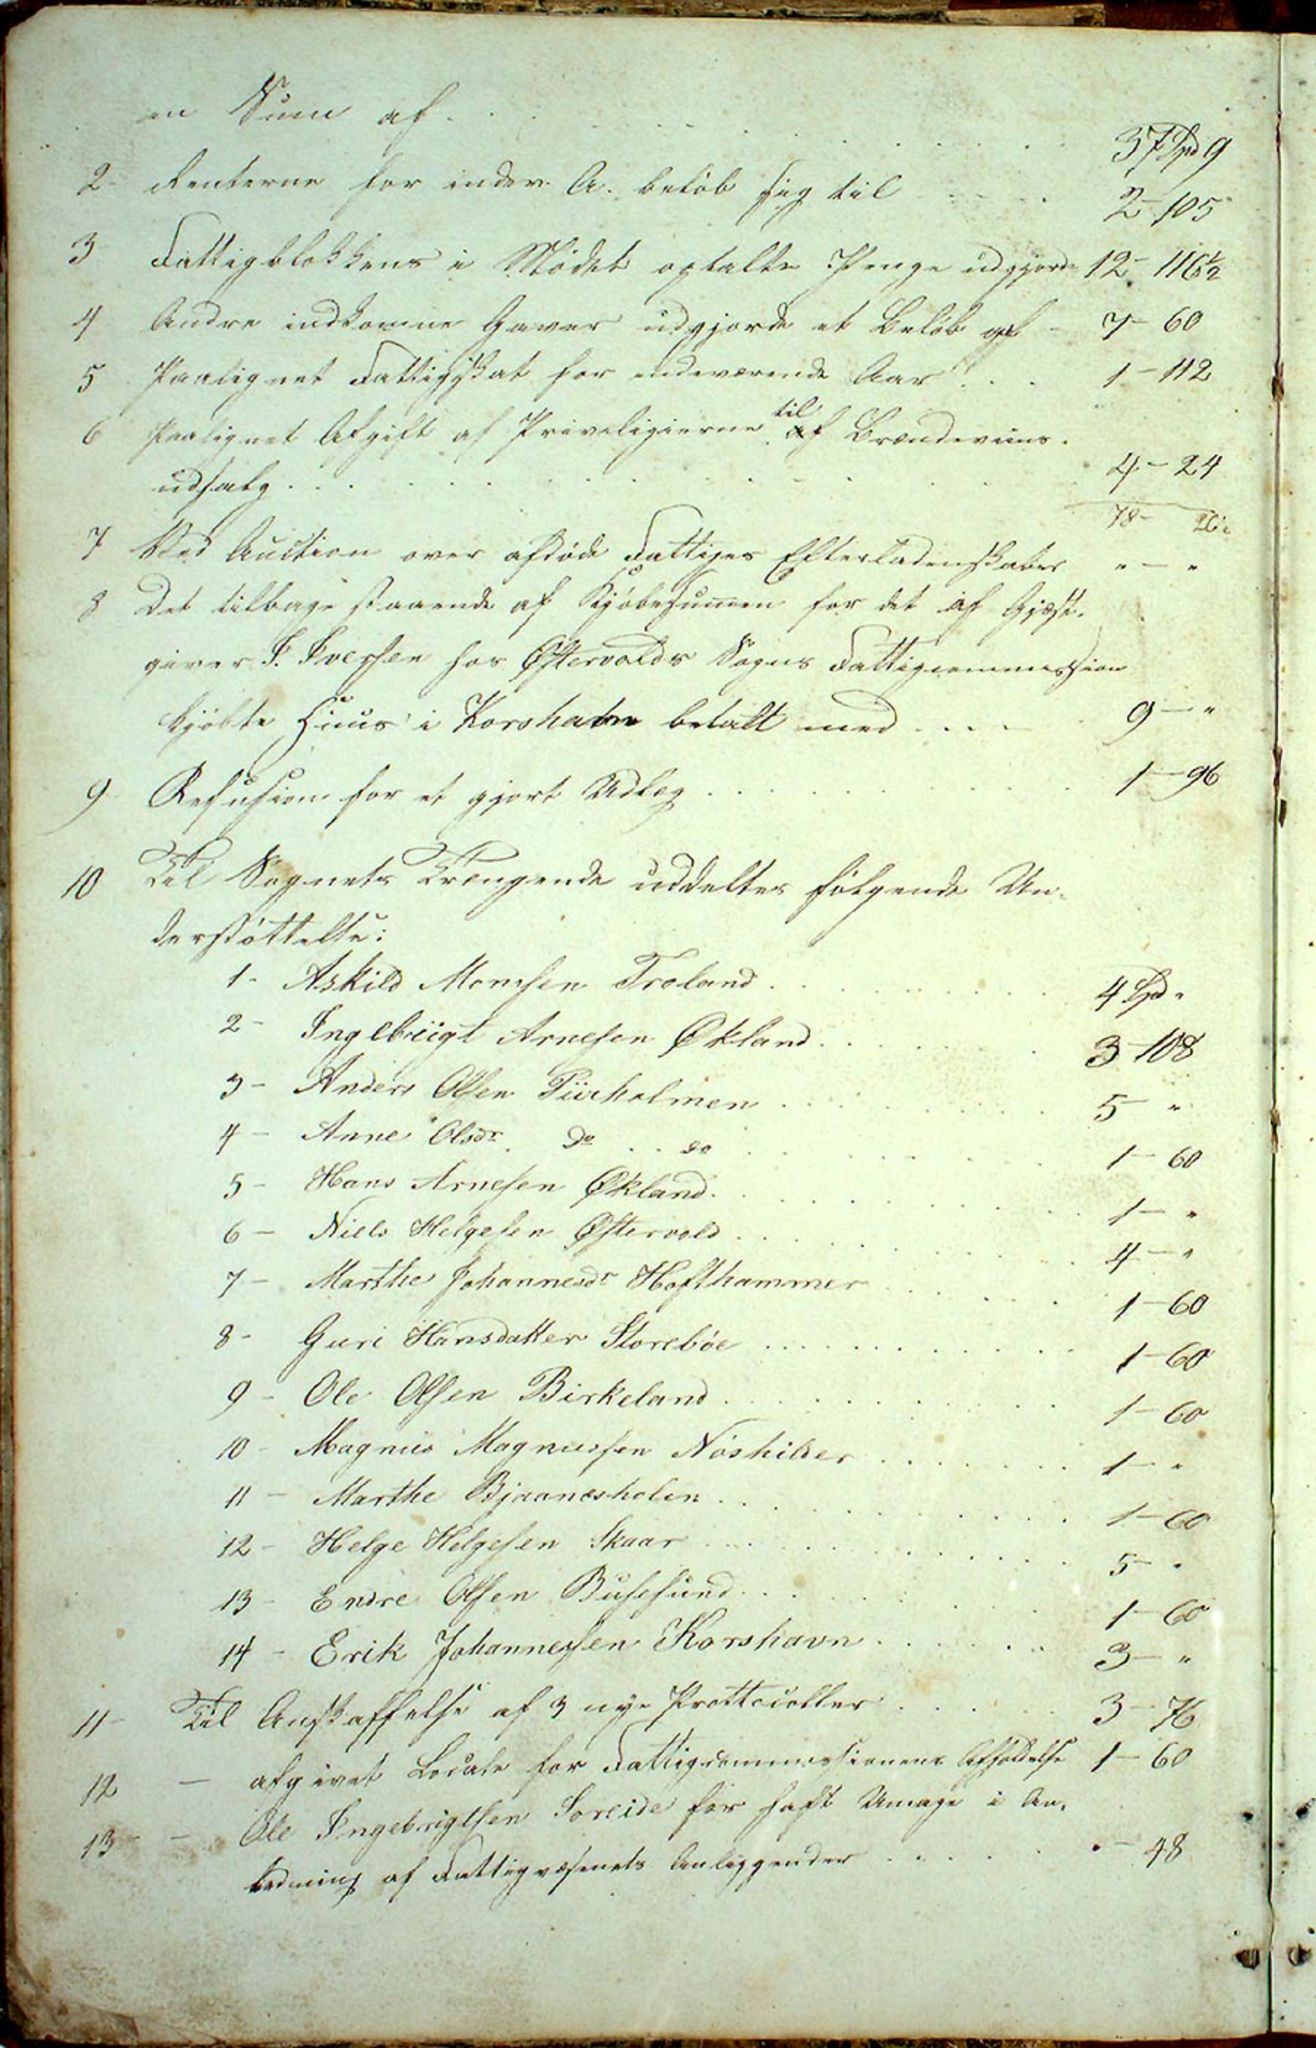 en Sum af . . . 37 Spd 9
2- Renterne for indev. A. beløb sig til . . . 2-105
3 Fattigblokkens i Mødet optalte Penge udgjorde 12-116½
4 Andre indkomne Gaver udgjorde et Beløb af - 7-60
5 Paalignet Fattigskat for indeværende Aar . . . 1-112
6 Paalignet Afgift af Priveligierne til Brændeviins-
udsalg . . . 4-24
78-
7 Ved Auction over afdøde Fattiges Efterladenskaber "-"
8 Det tilbage staaende af Kjøbesummen for det af Gjæst-
giver I. Iversen hos Østervolds Sogns Fattigcommission
kjøbte Huus i Korshavn betalt med . . . 9-"
9 Refusion for et gjort Udlæg . . . 1-96
10 Til Sognets Trængende uddeltes følgende Un-
derstøttelse:
1- Askild Monssen Troland . . . 4 Spd "
2- Ingebrigt Arnesen Økland . . . 3-108
3- Anders Olsen Tiirholmen . . . 5-"
4- Anne Olsdr. do . . do . . . 1-60
5- Hans Arnesen Økland . . . 1-"
6- Niels Helgesen Østervold . . . 4-"
7- Marthe Johannesdr Hofthammer . . . 1-60
8- Guri Hansdatter Storebøe . . . 1-60
9- Ole Olsen Birkeland . . . 1-60
10- Magnus Magnussen Nøshilder . . . 1-"
11- Marthe Bjaanæsholen . . . 1-60
12- Helge Helgesen Skaar . . . 5-"
13- Endre Olsen Busesund . . . 1-60
14- Erik Johannessen Korshavn . . . 3-"
11- Til Anskaffelse af 3 nye Prottocoller . . . 3-76
12 - afgivet Locale for Fattigcommissionens Afholdelse 1-60
13 - Ole Ingebrigtsen Soreide for haft Umage i An-
ledning af Fattigvæsenets Anliggender . . . "-48